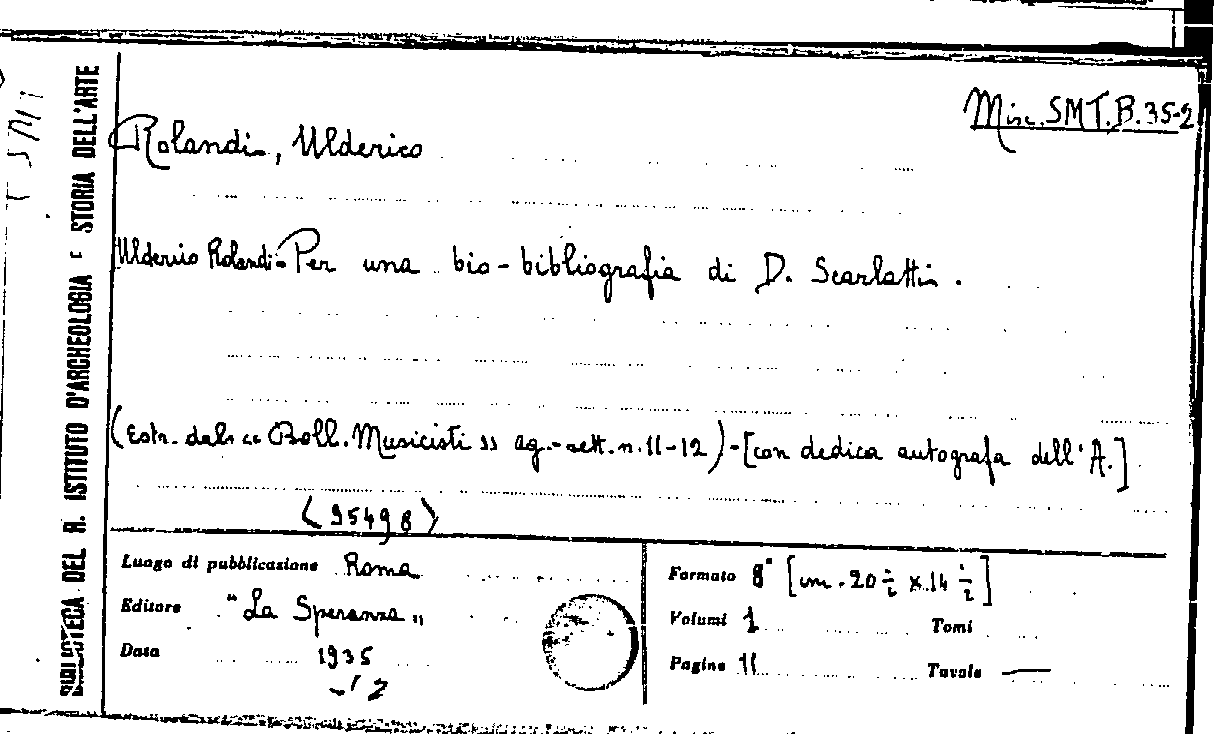 Misc. SMT. B. 35-2
Rolandi, Ulderico
Ulderico Rolandi - Per una bio-bibliografia di D. Scarlatti.
(Estr. dal: « Boll. Musicisti » ag.-sett. n. 11-12) - [con dedica autografa dell'A.]
<95498>
BIBLIOTECA DEL R. ISTITUTO D'ARCHEOLOGIA E STORIA DELL'ARTE
Luogo di pubblicazione Roma
Editore "La Speranza"
Data 1935
Formato 8° [cm. 20 1/2 x 14 1/2]
Volumi 1 Tomi
Pagine 11 Tavole —